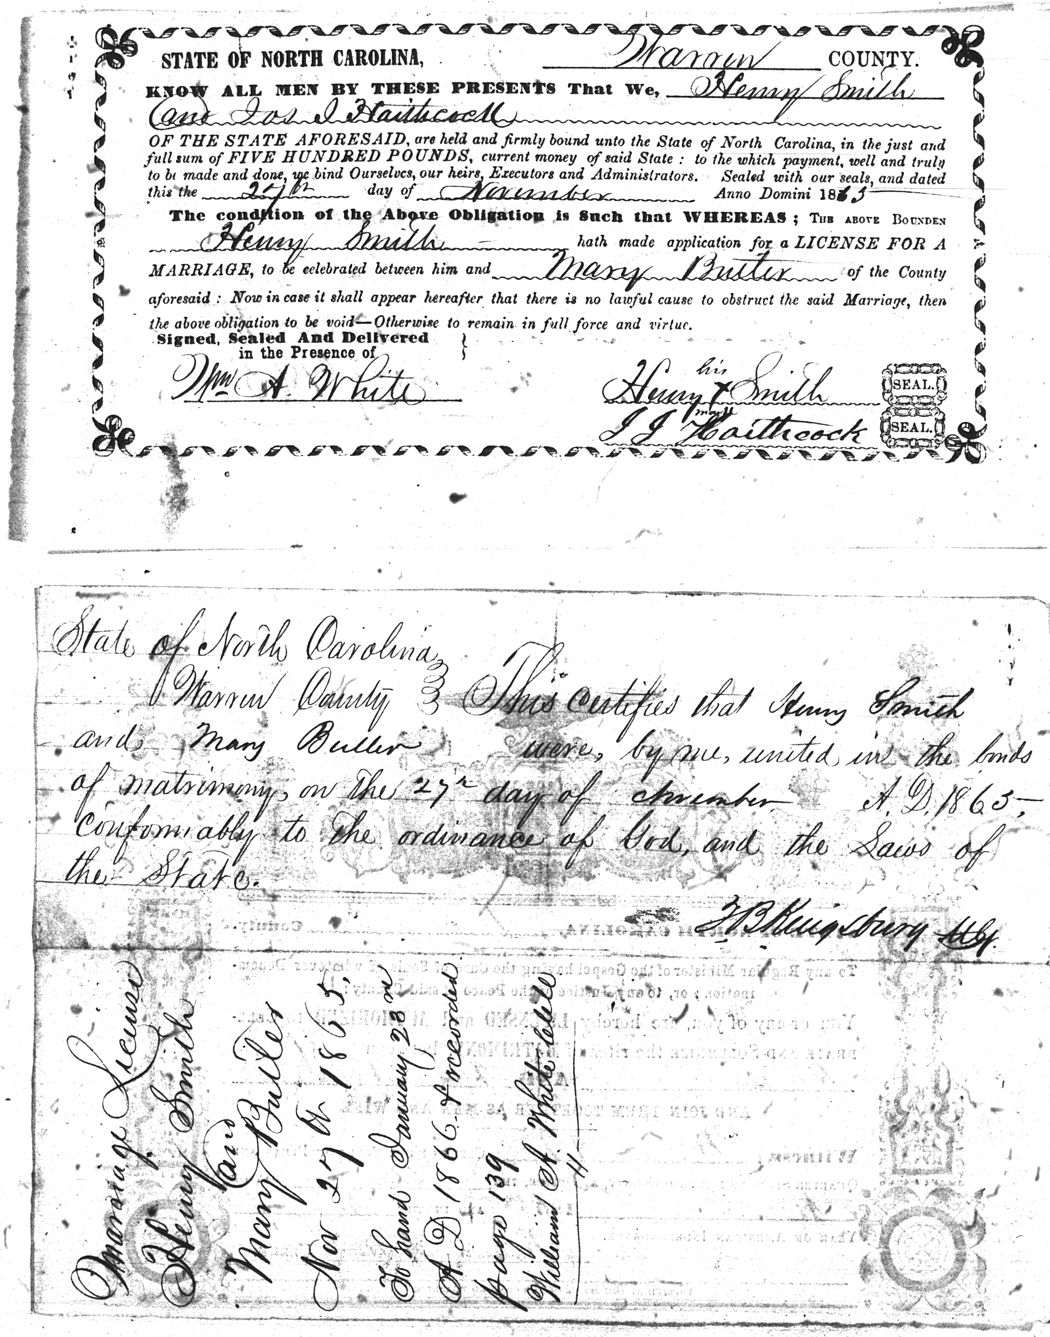 STATE OF NORTH CAROLINA, Warren COUNTY.
KNOW ALL MEN BY THESE PRESENTS That We, Henry Smith
and Jos J Haithcock
OF THE STATE AFORESAID, are held and firmly bound unto the State of North Carolina, in the just and
full sum of FIVE HUNDRED POUNDS, current money of said State : to the which payment, well and truly
to be made and done, we bind Ourselves, our heirs, Executors and Administrators. Sealed with our seals, and dated
this the 27th day of November Anno Domini 1865
The condition of the Above Obligation is Such that WHEREAS ; THE ABOVE BOUNDEN
Henry Smith hath made application for a LICENSE FOR A
MARRIAGE, to be celebrated between him and Mary Butler of the County
aforesaid : Now in case it shall appear hereafter that there is no lawful cause to obstruct the said Marriage, then
the above obligation to be void—Otherwise to remain in full force and virtue.
Signed, Sealed And Delivered
in the Presence of
Wm A. White
his
Henry X Smith SEAL.
mark
J J Haithcock SEAL.
State of North Carolina
Warren County This certifies that Henry Smith
and Mary Butler were, by me, united in the bonds
of matrimony, on the 27th day of November A. D. 1865,
conformably to the ordinance of God, and the Laws of
the State.
Kingsbury
Marriage License
of
Henry Smith
and
Mary Butler
Nov 27th 1865
To hand January 23rd
A D 1866. & recorded
page 139
William A White Clk